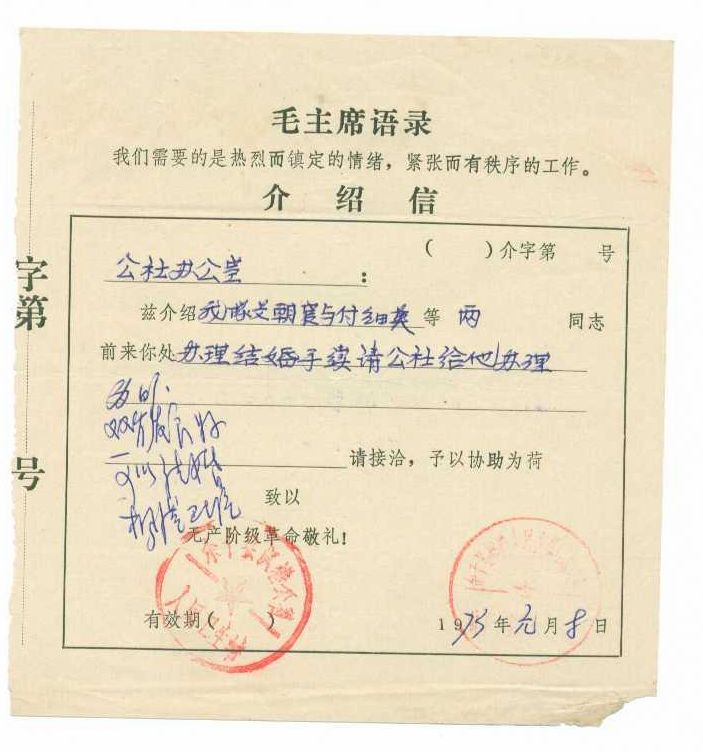 毛主席语录
我们需要的是热烈而镇定的情绪,紧张而有秩序的工作。
介绍信
字第 号
( )介字第 号
公社办公室:
兹介绍我队 朝 与付细英等 两 同志
前来你处办理结婚手续请公社给他办理
双方 良好
可以结婚
请接洽,予以协助为荷
致以
无产阶级革命敬礼!
有效期( )
1975年元月8日